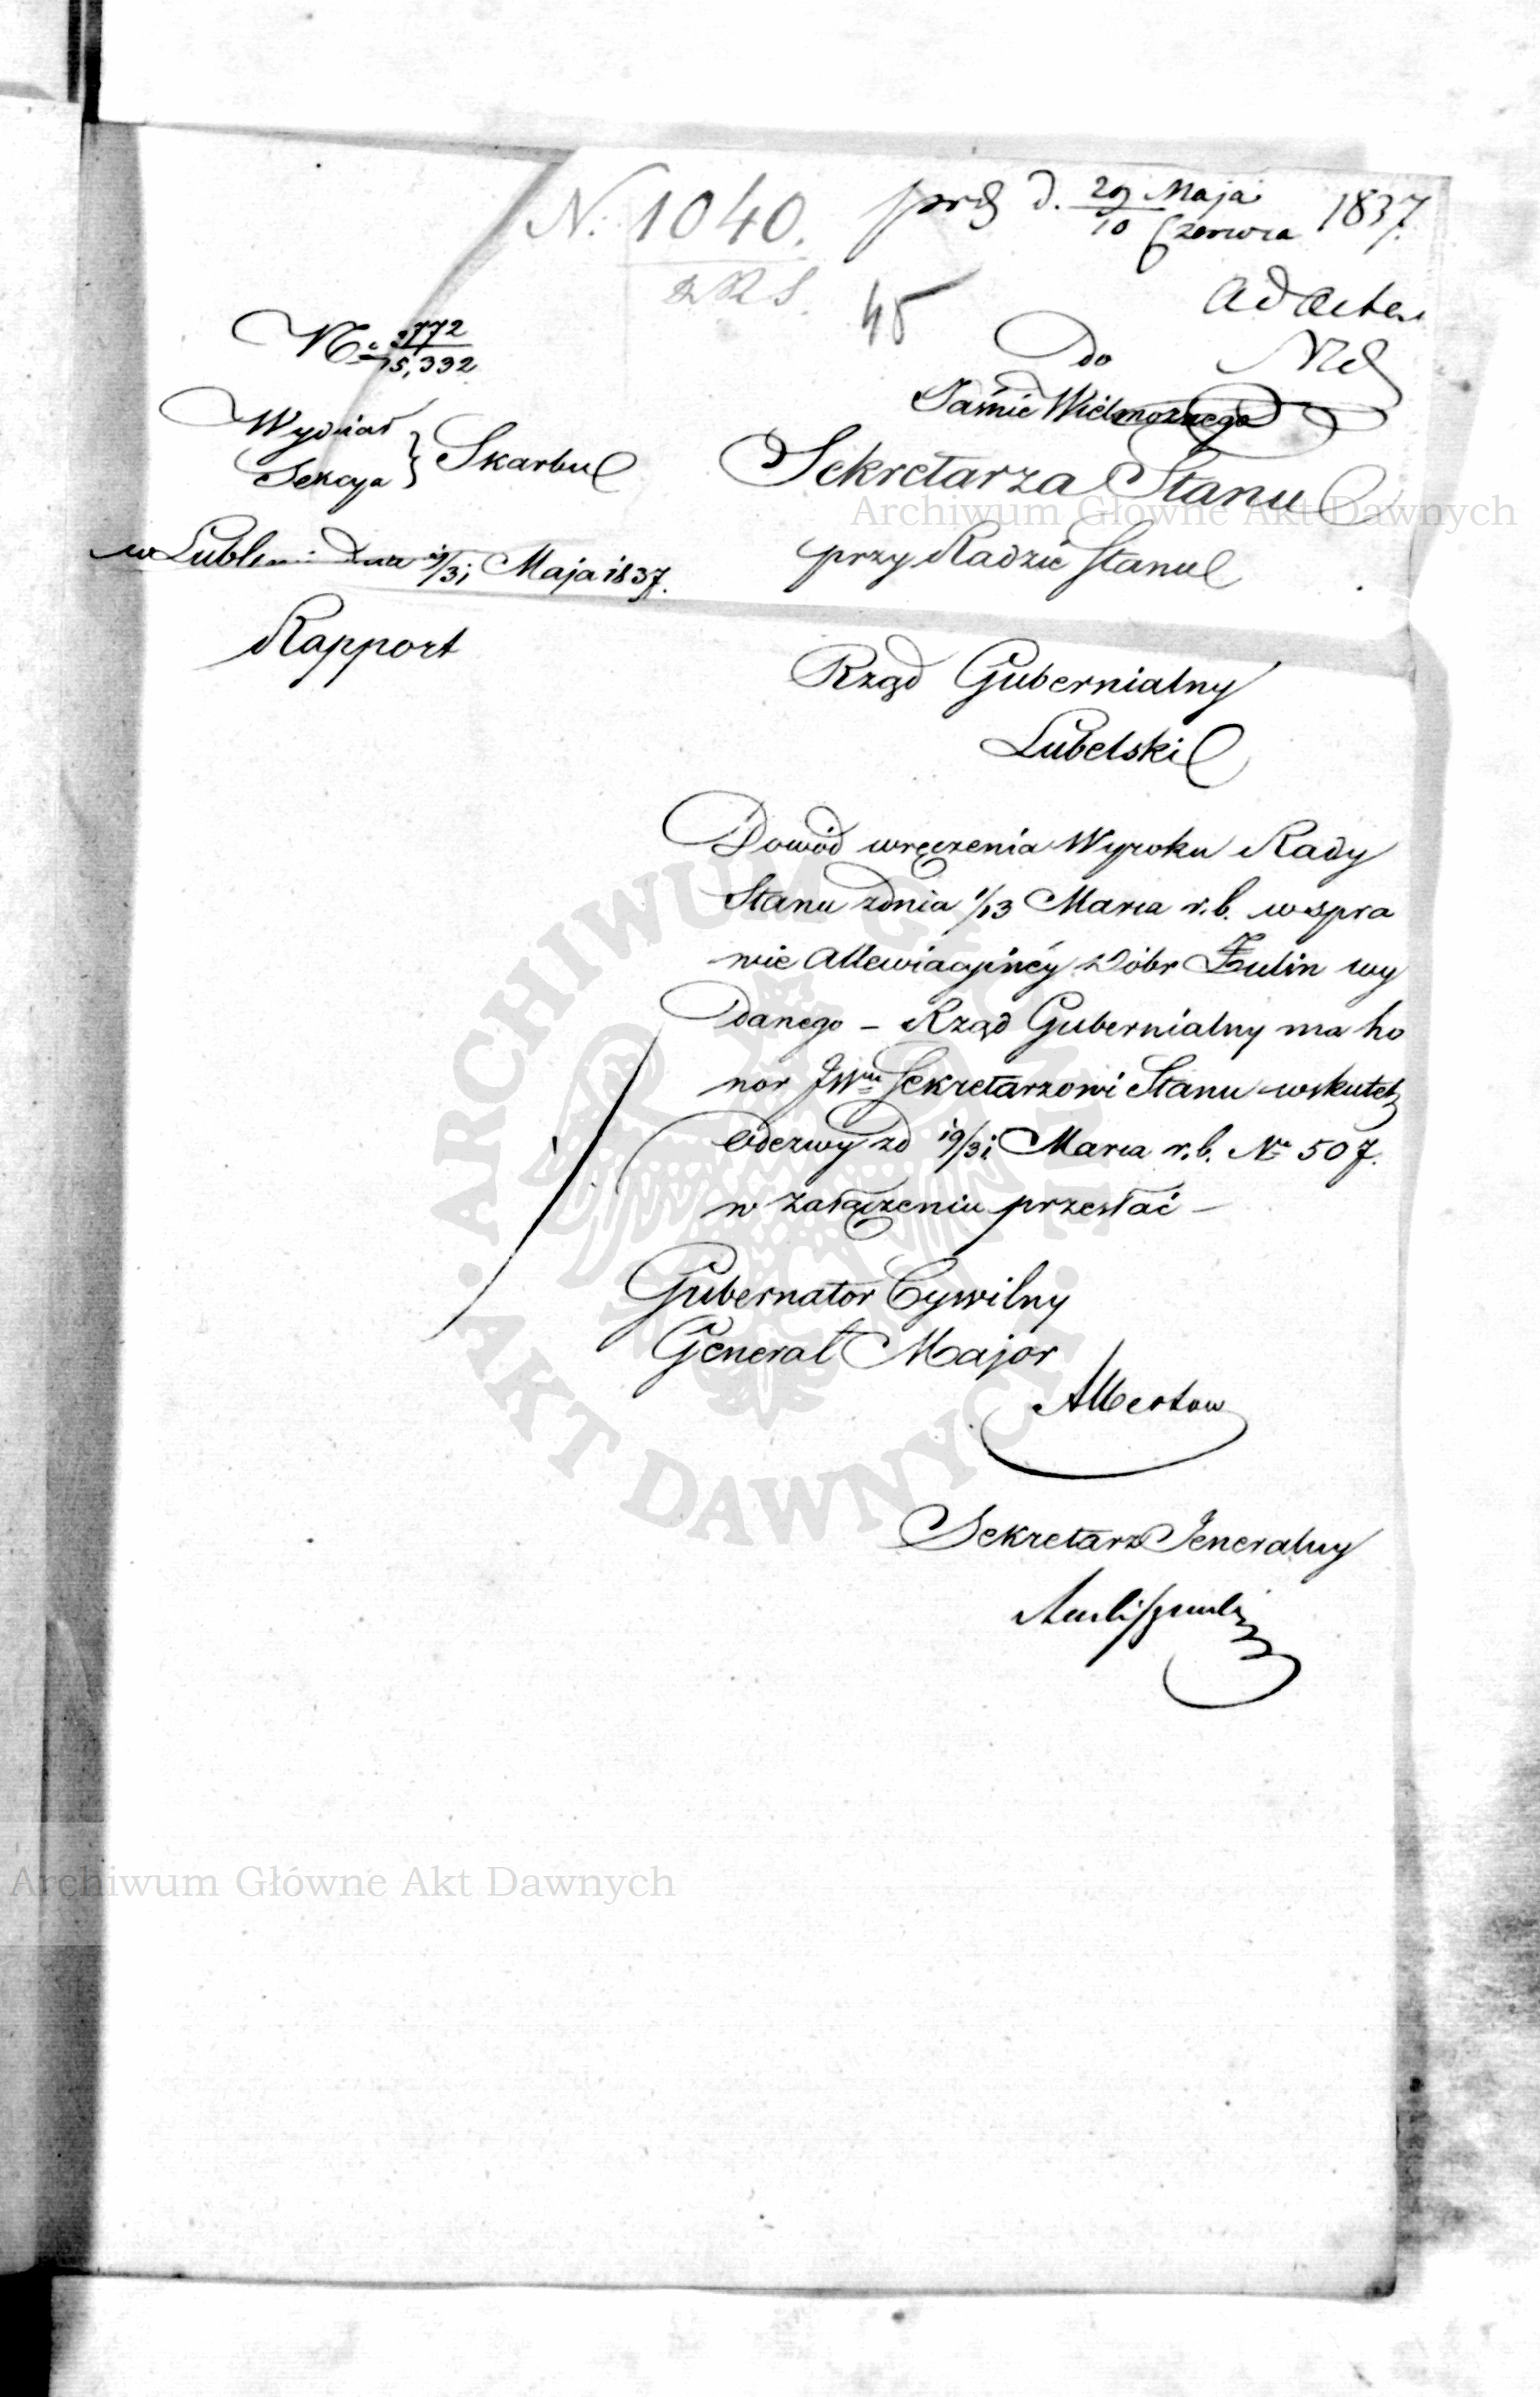 N. 1040.
prs d. 29 Maja / 10 Czerwca 1837.
45
ad acta
No 3772 / 15,332
Do
Jaśnie Wielmożnego
Wydział
Sekcya } Skarbu
Sekretarza Stanu
w Lublinie Dnia 19/31 Maja 1837.
przy Radzie Stanu
Rapport
Rząd Gubernialny
Lubelski
Dowód wręczenia Wyroku Rady
Stanu zdnia 1/13 Marca r. b. w spra
wie allewiacyinéy Dóbr Żulin wy
danego – Rząd Gubernialny ma ho
nor JWmu Sekretarzowi Stanu wskutek
Odezwy zd 19/31 Marca r. b. No 507.
w załączeniu przesłać –
Gubernator Cywilny
Generał Major
Albertow
Sekretarz Jeneralny
Archiwum Główne Akt Dawnych
Archiwum Główne Akt Dawnych
ARCHIWUM GŁÓWNE AKT DAWNYCH